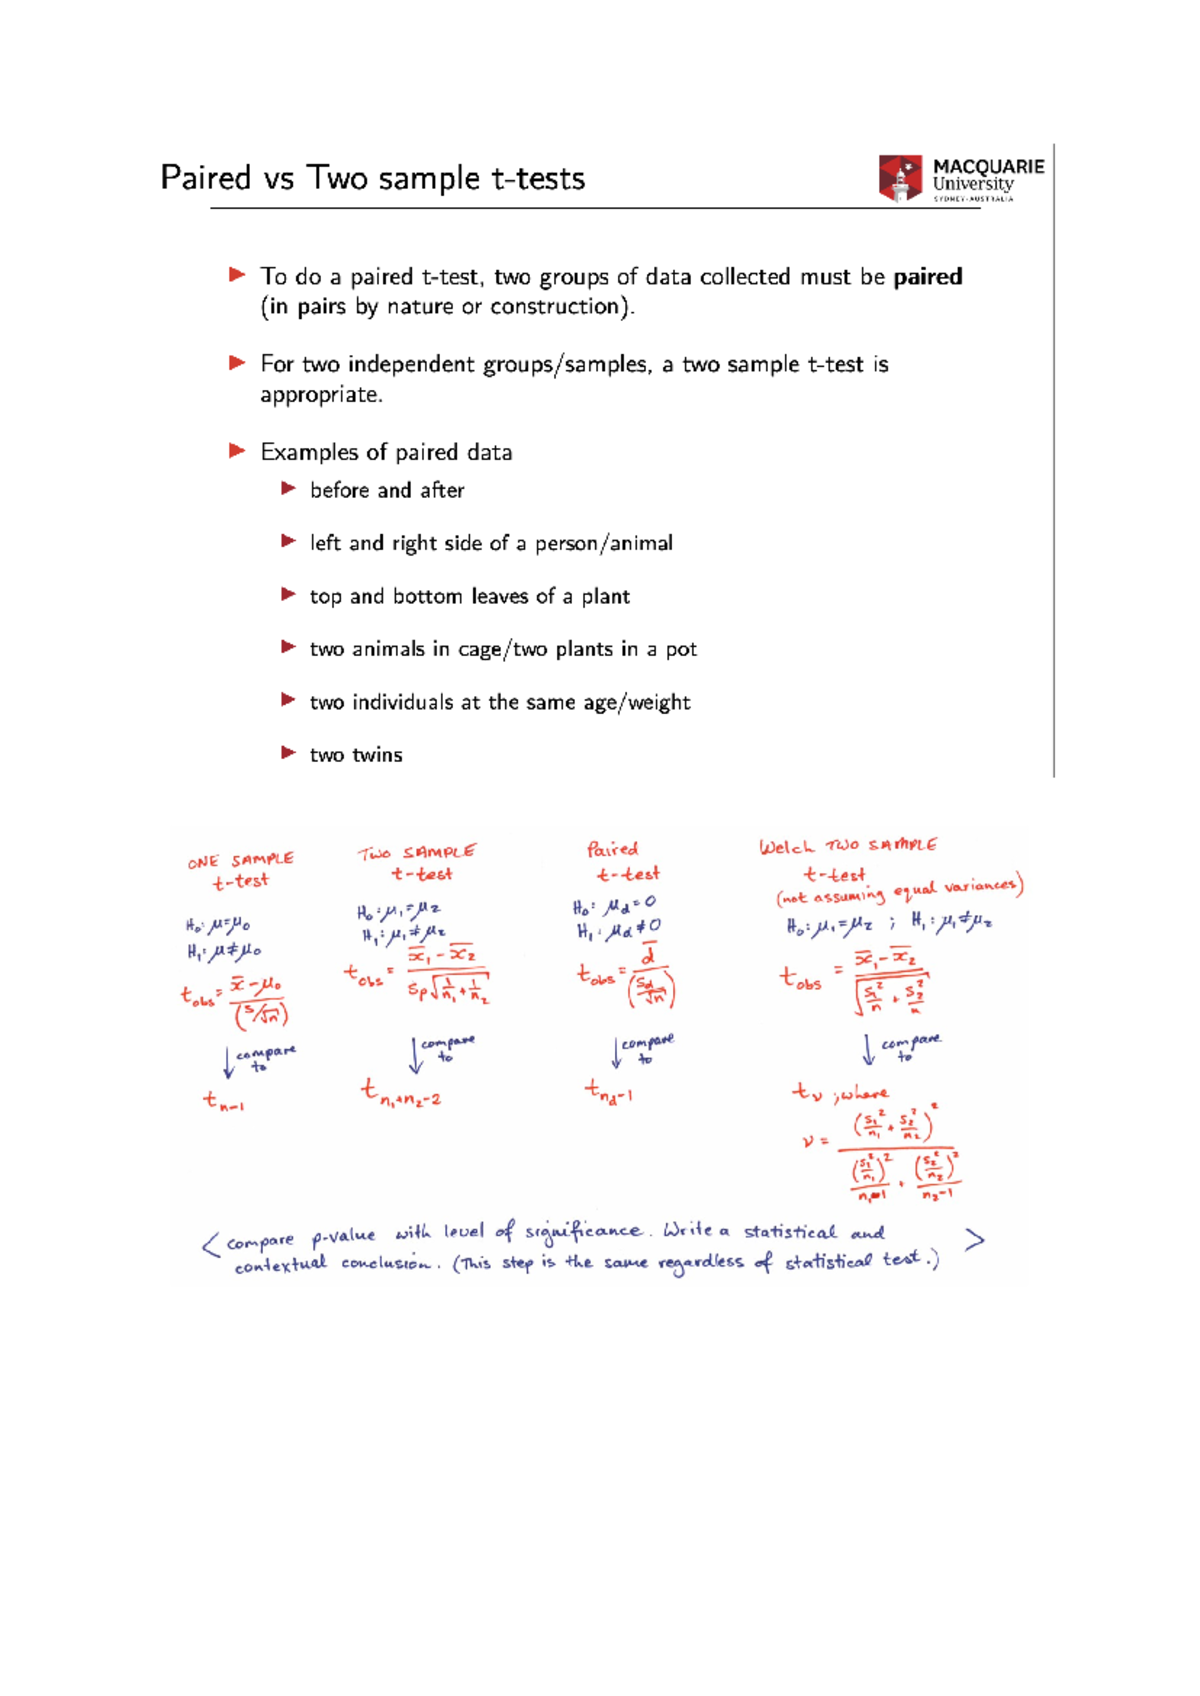 Paired vs Two sample t-tests
MACQUARIE
University
SYDNEY·AUSTRALIA
▶ To do a paired t-test, two groups of data collected must be paired
(in pairs by nature or construction).
▶ For two independent groups/samples, a two sample t-test is
appropriate.
▶ Examples of paired data
▶ before and after
▶ left and right side of a person/animal
▶ top and bottom leaves of a plant
▶ two animals in cage/two plants in a pot
▶ two individuals at the same age/weight
▶ two twins
ONE SAMPLE
t-test
H₀: μ=μ₀
H₁: μ≠μ₀
t_obs = (x̄ - μ₀) / (s/√n)
↓ compare
to
t_{n-1}
TWO SAMPLE
t-test
H₀: μ₁=μ₂
H₁: μ₁≠μ₂
t_obs = (x̄₁ - x̄₂) / (Sp√(1/n₁ + 1/n₂))
↓ compare
to
t_{n₁+n₂-2}
Paired
t-test
H₀: μd=0
H₁: μd≠0
t_obs = d̄ / (Sd/√n)
↓ compare
to
t_{nd-1}
Welch TWO SAMPLE
t-test
(not assuming equal variances)
H₀: μ₁=μ₂ ; H₁: μ₁≠μ₂
t_obs = (x̄₁ - x̄₂) / √(s₁²/n + s₂²/n)
↓ compare
to
t_ν ; where
ν = (s₁²/n₁ + s₂²/n₂)² / ((s₁²/n₁)²/(n₁-1) + (s₂²/n₂)²/(n₂-1))
< compare p-value with level of significance. Write a statistical and >
contextual conclusion. (This step is the same regardless of statistical test.)